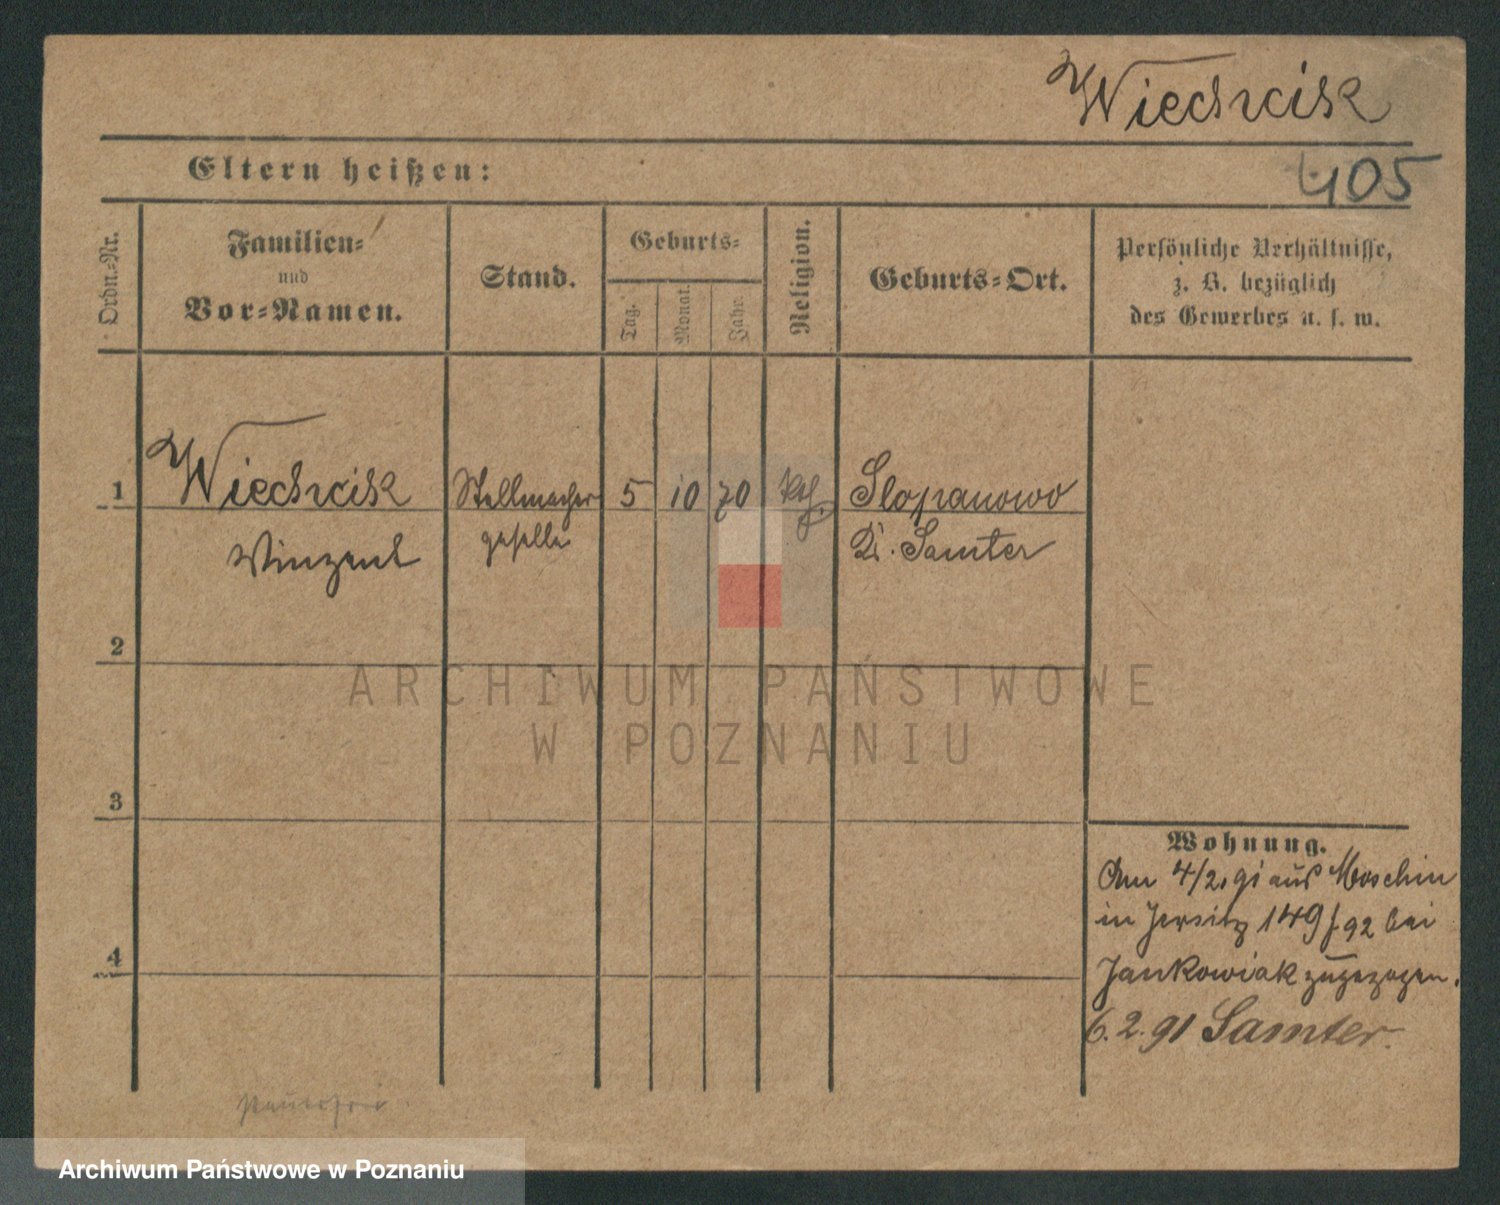 Wiechcik
405
Eltern heißen:
Ordn.-Nr.
Familien-
und
Vor-Namen.
Stand.
Geburts-
Tag.
Monat.
Jahr.
Religion.
Geburts-Ort.
Persönliche Verhältnisse,
z. B. bezüglich
des Gewerbes u. s. w.
1 Wiechcik Stellmacher 5 10 70 kth. Slopanowo
Winzent geselle Kr. Samter
2
3
4
Wohnung.
Am 4/2. 91 aus Moschin
in Jersitz 149/92 bei
Jankowiak zugezogen.
6. 2. 91 Samter.
ARCHIWUM PAŃSTWOWE
W POZNANIU
Archiwum Państwowe w Poznaniu